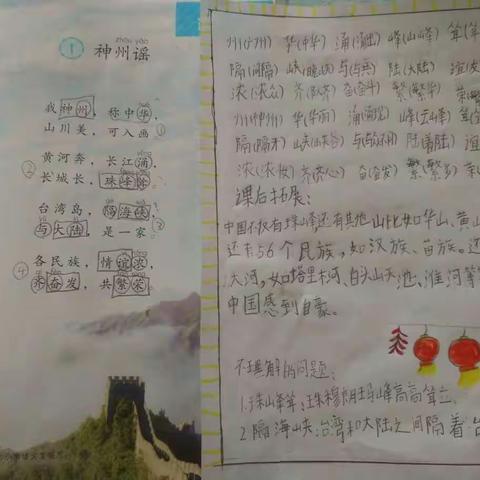 1 神州谣
我神州，称中华，
山川美，可入画。
黄河奔，长江涌，
长城长，珠峰耸。
台湾岛，隔海峡，
与大陆，是一家。
各民族，情谊浓，
齐奋发，共繁荣。
州(广州) 华(中华) 涌 峰(山峰) 耸
隔(间隔) 峡 与 陆(大陆) 谊
浓(浓众) 齐 奋(奋斗) 繁(繁华) 荣
州(神州) 华(华丽) 涌 峰 耸
隔 峡(山峡谷) 与 陆(着陆) 谊
浓(浓妆) 齐(齐心) 奋(奋发) 繁(繁多) 荣
课后拓展：
中国不仅有珠峰还有其他山比如华山、黄山
还有56个民族，如汉族、苗族。还
大河，如塔里木河、白头山天池、淮河等
中国感到自豪。
不理解的问题：
1.珠峰耸：珠穆朗玛峰高高耸立。
2.隔海峡：台湾和大陆之间隔着台